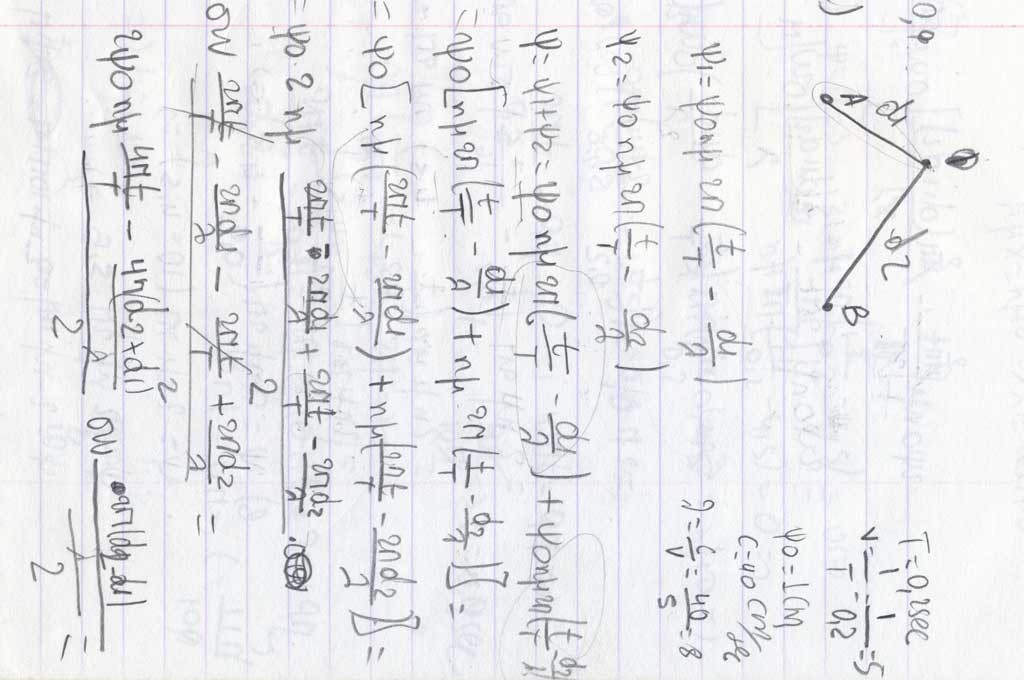 0,9
)
O
A
d1
d2
B
T=0,2sec
ν=1/T=1/0,2=5
ψ0=1cm
c=40 cm/sec
λ=c/ν=40/5=8
ψ1=ψ0ημ2π(t/T - d1/λ)
ψ2=ψ0ημ2π(t/T - d2/λ)
ψ=ψ1+ψ2=ψ0ημ2π(t/T - d1/λ)+ψ0ημ2π(t/T - d2/λ)
=ψ0[ημ2π(t/T - d1/λ)+ημ2π(t/T - d2/λ)]=
=ψ0[ημ(2πt/T - 2πd1/λ)+ημ(2πt/T - 2πd2/λ)]=
=ψ0·2ημ (2πt/T - 2πd1/λ + 2πt/T - 2πd2/λ)/2 ·
συν (2πt/T - 2πd1/λ - 2πt/T + 2πd2/λ)/2 =
2ψ0ημ (4πt/T - 2π(d2+d1)/λ)/2 συν (2π(d2-d1)/λ)/2 =